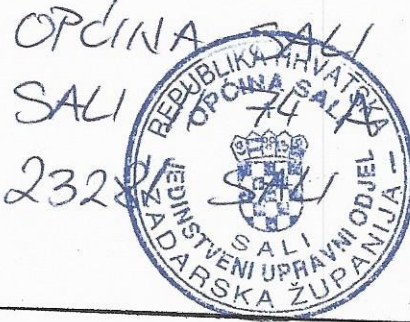 OPĆINA SALI
SALI 74 A
23281 SALI
REPUBLIKA HRVATSKA
ZADARSKA ŽUPANIJA
OPĆINA SALI
JEDINSTVENI UPRAVNI ODJEL
SALI